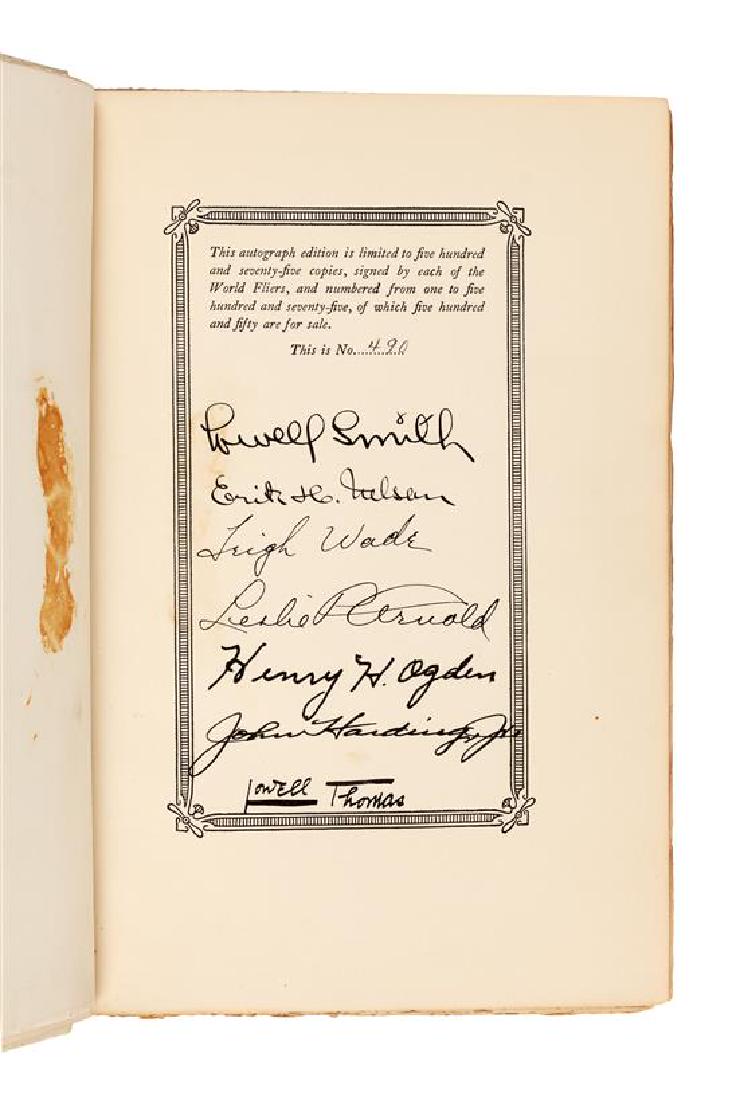 This autograph edition is limited to five hundred
and seventy-five copies, signed by each of the
World Fliers, and numbered from one to five
hundred and seventy-five, of which five hundred
and fifty are for sale.
This is No....490
Lowell Smith
Erik H. Nelson
Leigh Wade
Leslie P. Arnold
Henry H. Ogden
John Harding, Jr.
Lowell Thomas